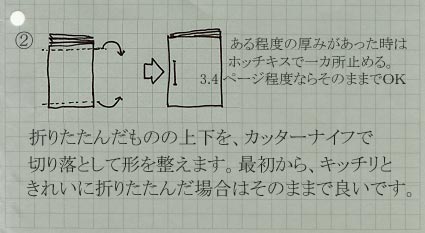 ②
ある程度の厚みがあった時は
ホッチキスで一カ所止める。
3.4 ページ程度ならそのままでOK
折りたたんだものの上下を、カッターナイフで
切り落として形を整えます。最初から、キッチリと
きれいに折りたたんだ場合はそのままで良いです。